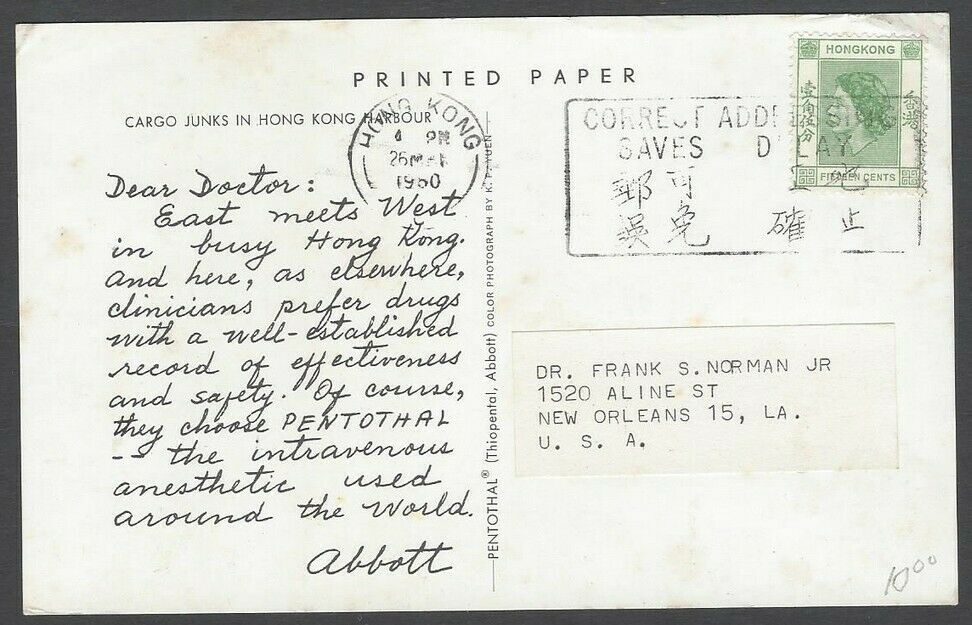 PRINTED PAPER
CARGO JUNKS IN HONG KONG HARBOUR
HONG KONG
4 PM
26 MAR
1960
CORRECT ADDRESSING
SAVES DELAY
郵可
誤免 確止
HONGKONG
壹角伍分
香港
FIFTEEN CENTS
Dear Doctor:
East meets West
in busy Hong Kong.
And here, as elsewhere,
clinicians prefer drugs
with a well-established
record of effectiveness
and safety. Of course,
they choose PENTOTHAL
-- the intravenous
anesthetic used
around the world.
Abbott
PENTOTHAL® (Thiopental, Abbott) COLOR PHOTOGRAPH BY K. F. YUEN
DR. FRANK S. NORMAN JR
1520 ALINE ST
NEW ORLEANS 15, LA.
U. S. A.
10.00